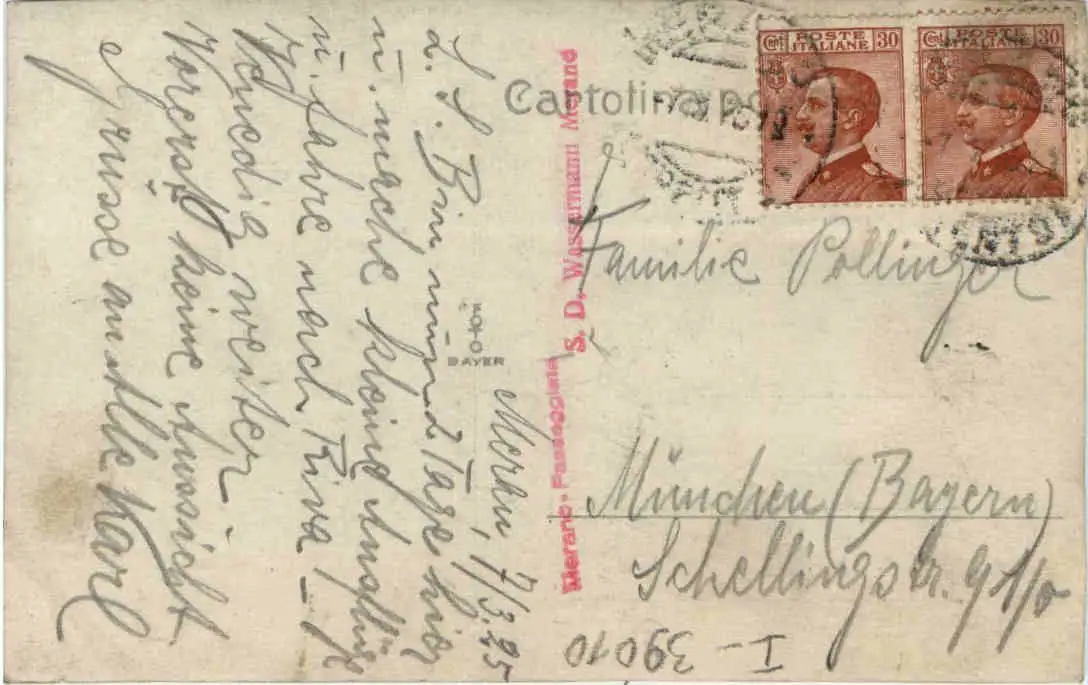 Meran, 7/3.25
L. S. Bin nun 2 Tage hier
u. mache kleine Ausflüge
u. fahre nach Riva –
Venedig weiter.
Vorerst keine Aussicht
Grüsse an Alle Karl
FOTO
BAYER
Merano - Passeggiata
S. D. Wassermann Merano
Cartolina po
POSTE ITALIANE
Cent 30
POSTE ITALIANE
Cent 30
Familie Pollinger
München (Bayern)
Schellingstr. 91/0
I - 39010